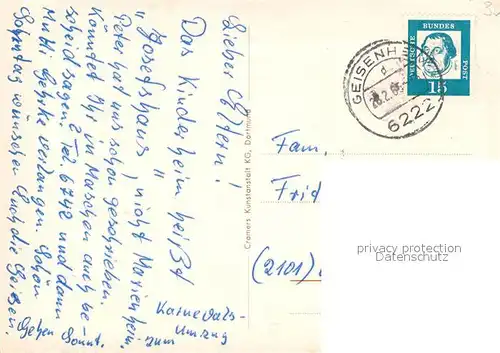 Lieber Eltern!
Das Kinderheim heißt
"Josefshaus", nicht Marienheim.
Peter hat uns schon geschrieben.
Könndet Ihr in Maschen auch be-
scheid sagen? Tel. 6742 und dann
Mutti Gerike verlangen. Schön
Sonntag wünschen Euch die Geisen.
Gehen Sonnt.
zum
Karnevals-
Umzug
Cramers Kunstanstalt KG, Dortmund
DEUTSCHE BUNDES POST
15
GEISENHEIM
d
6222
Fam.
Frid
(2101)
privacy protection
Datenschutz